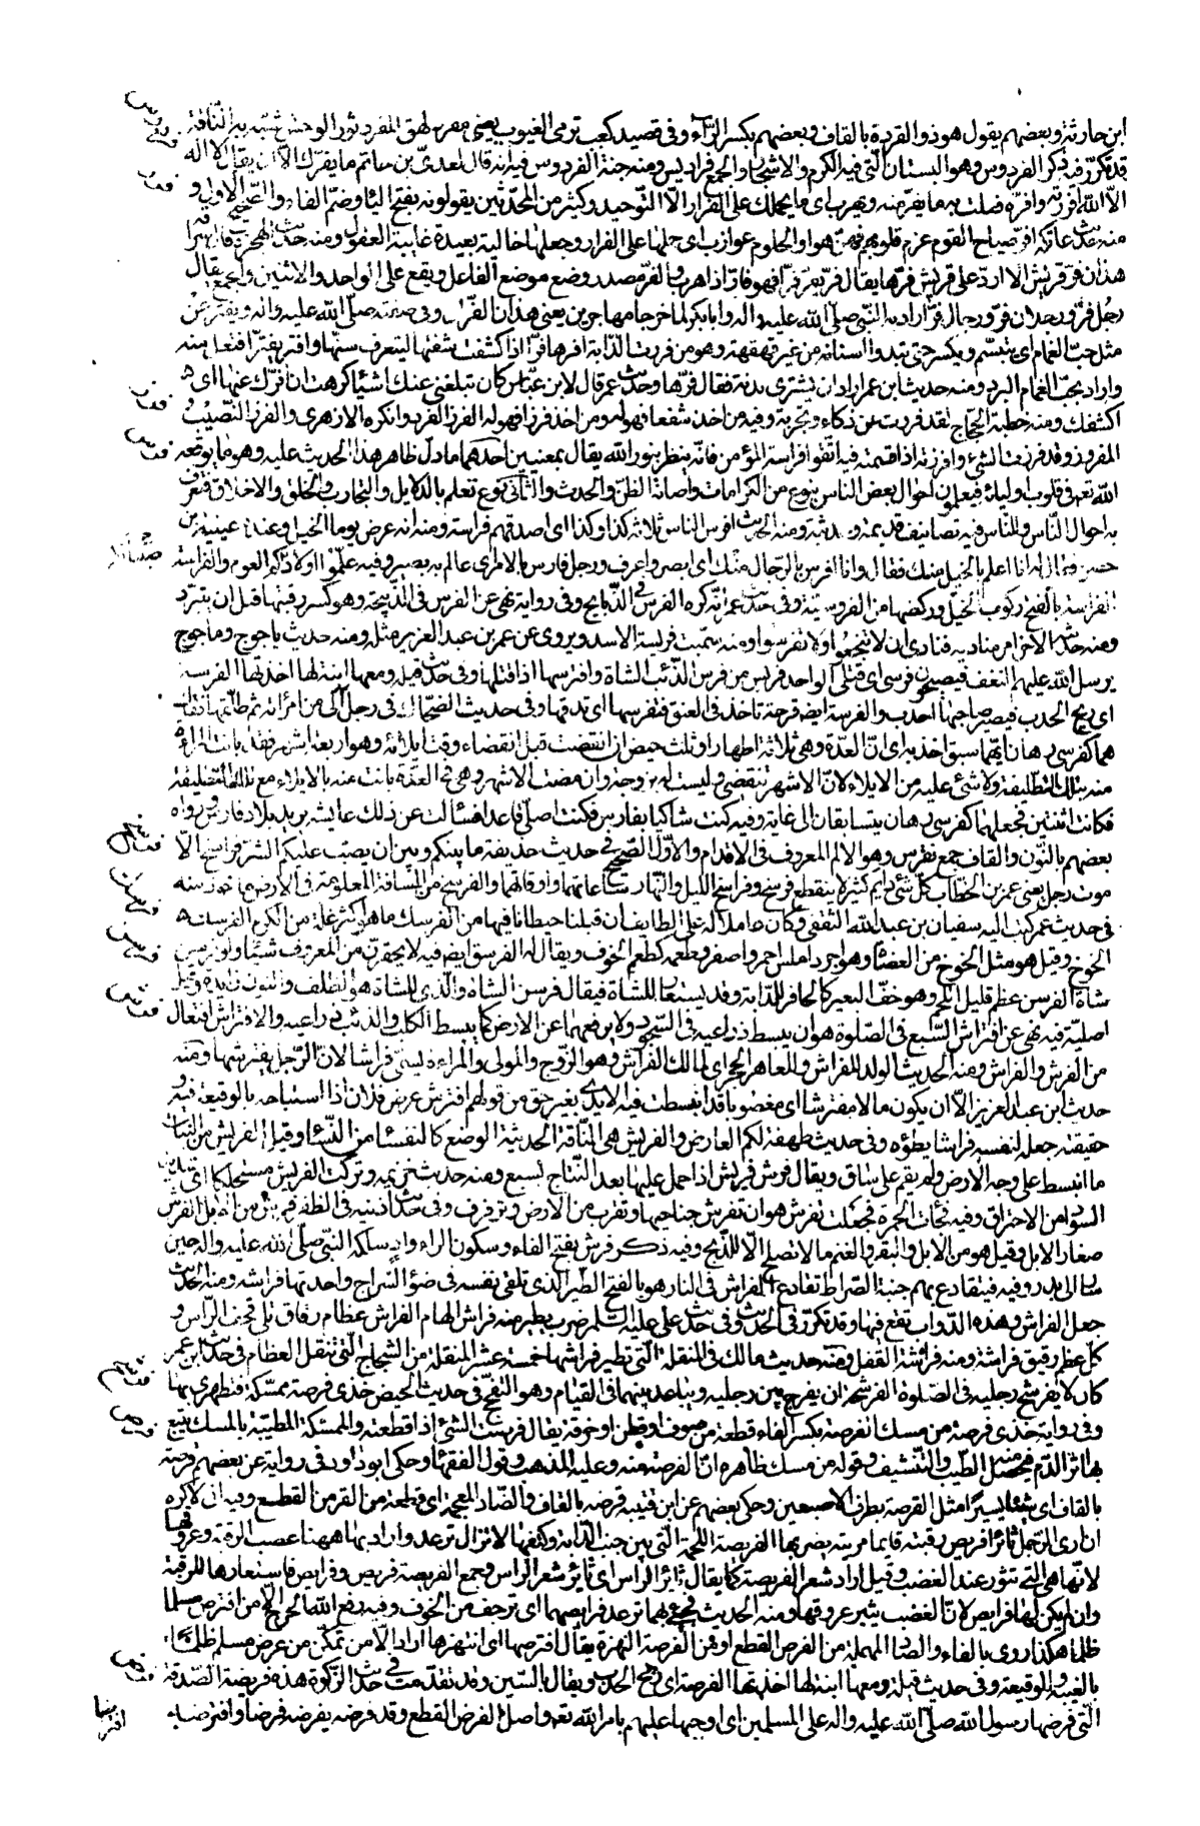 ابن حارثة وبعضهم يقول هو ذو القردة بالقاف وبعضهم بكسر الراء وفى قصيد كعب ترمى الغيوب بعينى مفرد لهق المفرد ثور الوحش شبه به الناقة
قد تكرر فيه ذكر الفردوس وهو البستان الذى فيه الكرم والاشجار والجمع فراديس ومنه جنة الفردوس فيه انه قال لعدى بن حاتم ما يفرك الا ان يقال لا اله
الا الله افررته وافره فعلت به ما يفر منه ويهرب اى ما يحملك على الفرار الا التوحيد وكثير من المحدثين يقولونه بفتح اليا وضم الفاء والصحيح الاول و
منه حديث عاتكة افر صياح القوم عزم قلوبهم فهن هواو الحلوم عوازب اى حملها على الفرار وجعلها خالية بعيدة غايبة العقول ومنه حديث الهجرة قال سراقة
هذان فر قريش الا ارد على قريش فرها يقال فر يفر فرا فهو فار اذا هرب والفر مصدر وضع موضع الفاعل ويقع على الواحد والاثنين والجمع يقال
رجل فر ورجلان فر ورجال فر اراد به النبى صلى الله عليه واله وابا بكر لما خرجا مهاجرين يعنى هذان الفران وفى صفته صلى الله عليه واله ويفتر عن
مثل حب الغمام اى يتبسم ويكسر حتى تبدو اسنانه من غير قهقهة وهو من فررت الدابة افرها فرا اذا كشفت شفتها ليتعرف سنها وافتر يفتر افتعل منه
واراد بحب الغمام البرد ومنه حديث ابن عمر اراد ان يشترى بدنة فقال فرها وحديث عمر قال لابن عباس كان تبلغنى عنك اشياء كرهت ان افرك عنها اى
اكشفك ومنه خطبة الحجاج لقد فررت عن ذكاء وتجربة وفيه من اخذ شفعا فهو له ومن اخذ فرزا فهو له الفرز الفرد وانكره الازهرى والفرز النصيب
المفروز وقد فرزت الشئ وافرزته اذا قسمته فيه اتقوا فراسة المؤمن فانه ينظر بنور الله يقال بمعنيين احدهما ما دل ظاهر هذا الحديث عليه وهو ما يوقعه
الله تعه فى قلوب اوليائه فيعلمون احوال بعض الناس بنوع من الكرامات واصابة الظن والحدس والثانى نوع تعلم بالدلايل والتجارب والخلق والاخلاق فتعرف
به احوال الناس وللناس فيه تصانيف قديمة وحديثة ومنه الحديث افرس الناس ثلاثة كذا وكذا اى اصدقهم فراسة ومنه انه عرض يوما الخيل وعنده عيينة بن
حصن فقال له انا اعلم بالخيل منك فقال وانا افرس بالرجال منك اى ابصر واعرف ورجل فارس بالامر اى عالم به بصير وفيه علموا اولادكم العوم والفراسة
الفراسة بالفتح ركوب الخيل وركضها من الفروسية وفى حديث عمر انه كره الفرس فى الذبايح وفى رواية نهى عن الفرس فى الذبيحة وهو كسر رقبتها قبل ان تبرد
ومنه حديثه الاخر امر مناديه فنادى ان لا تنخعوا ولا تفرسوا ومنه سميت فريسة الاسد ويروى عن عمر بن عبد العزيز مثله ومنه حديث ياجوج وماجوج
يرسل الله عليهم النغف فيصبحون فرسى اى قتلى الواحد فريس من فرس الذئب الشاة وافترسها اذا قتلها وفى حديث قيلة ومعها ابنة لها اخذتها الفرسة
اى ريح الحدب فيصير صاحبها احدب والفرسة ايضه قرحة تاخذ فى العنق فتفرسها اى تدقها وفى حديث الضحاك فى رجل الى من امرأته ثم طلقها فقال
هما كفرسى رهان ايهما سبق اخذ به اى ان العدة وهى ثلاثة اطهار او ثلث حيض ان انقضت قبل انقضاء وقت ايلائه وهو اربعة اشهر فقد بانت المراة
منه بتلك التطليقة ولا شئ عليه من الايلاء لان الاشهر تنقضى وليست له بزوجة وان مضت الاشهر وهى فى العدة بانت منه بالايلاء مع تلك التطليقة
فكانت اثنتين فجعلهما كفرسى رهان يتسابقان الى غاية وفيه كنت شاكيا بفارس فكنت اصلى قاعدا فسألت عن ذلك عايشة يريد بلاد فارس ورواه
بعضهم بالنون والقاف جمع نقرس وهو الالم المعروف فى الاقدام والاول الصحيح فى حديث حذيفة ما بينكم وبين ان يصب عليكم الشر فراسخ الا
موت رجل يعنى عمر بن الخطاب كل شئ دايم كثير لا ينقطع فرسخ وفراسخ الليل والنهار ساعاتهما واوقاتهما والفرسخ من المسافة المعلومة فى الارض ماخوذ منه
فى حديث عمر كتب اليه سفيان بن عبد الله الثقفى وكان عاملا له على الطايف ان قبلنا حيطانا فيها من الفرسك ما هو اكثر غلة من الكرم الفرسك
الخوخ وقيل هو مثل الخوخ من العضاه وهو اجرد املس احمر واصفر وطعمه كطعم الخوخ ويقال له الفرسق ايضه فيه لا يحقرن من المعروف شيئا ولو فرسن
شاة الفرسن عظم قليل اللحم وهو خف البعير كالحافر للدابة وقد يستعار للشاة فيقال فرسن الشاة والذى للشاة هو الظلف والنون زايدة وقيل
اصلية فيه نهى عن افتراش السبع فى الصلوة هو ان يبسط ذراعيه فى السجود ولا يرفعهما عن الارض كما يبسط الكلب والذئب ذراعيه والافتراش افتعال
من الفرش والفراش ومنه الحديث الولد للفراش وللعاهر الحجر اى لمالك الفراش وهو الزوج والمولى والمراءة ليسمى فراشا لان الرجل يفترشها ومنه
حديث ابن عبد العزيز الا ان يكون مالا مفترشا اى مغصوبا قد انبسطت فيه الايدى بغير حق من قولهم افترش عرض فلان اذا استباحه بالوقيعة فيه و
حقيقته جعله لنفسه فراشا يطؤه وفى حديث طهفة لكم العارض والفريش هى الناقة الحديثة الوضع كالنفساء من النساء وقيل الفريش من النبات
ما انبسط على وجه الارض ولم يقم على ساق ويقال فرس فريش اذا حمل عليها بعد النتاج لسبع ومنه حديث خزيمة وتركت الفريش مستحلكا اى شديد
السواد من الاحتراق وفيه فجاءت الحمرة فجعلت تفرش هو ان تفرش جناحها وتقرب من الارض وترفرف وفى حديث اذينة فى الظفر فرش من الابل الفرش
صغار الابل وقيل هو من الابل والبقر والغنم ما لا تصلح الا للذبح وفيه ذكر فرش بفتح الفاء وسكون الراء واد سلكه النبى صلى الله عليه واله حين
سار الى بدر وفيه فيتقادع بهم جنبة الصراط تقادع الفراش فى النار هو بالفتح الطير الذى تلقى نفسه فى ضوء السراج واحدتها فراشة ومنه الحديث
جعل الفراش وهذه الدواب تقع فيها وقد تكرر فى الحديث وفى حديث على عليه السلم ضرب يطير منه فراش الهام الفراش عظام رقاق تلى قحف الراس و
كل عظم رقيق فراشة ومنه فراشة القفل ومنه حديث مالك فى المنقلة التى تطير فراشها خمسة عشر المنقلة من الشجاج التى تنقل العظام فى حديث ابن عمر
كان لا يفرشح رجليه فى الصلوة الفرشحة ان يفرج بين رجليه ويباعد بينهما فى القيام وهو التفحج فى حديث الحيض خذى فرصة ممسكة فتطهرى بها
وفى رواية خذى فرصة من مسك الفرصة بكسر الفاء قطعة من صوف او قطن او خرقة يقال فرصت الشئ اذا قطعته والممسكة المطيبة بالمسك يتبع
بها اثر الدم فيحصل منه الطيب والتنشيف وقوله من مسك ظاهره ان الفرصة منه وعليه المذهب وقول الفقهاء وحكى ابو داود فى رواية عن بعضهم قرصة
بالقاف اى شيئا يسيرا مثل القرصة بطرف الاصبعين وحكى بعضهم عن ابن قتيبة قرضة بالقاف والضاد المعجمة اى قطعة من القرض القطع وفيه انى لاكره
ان ارى الرجل ثائرا فريص رقبته قايما على مريته يضربها الفريصة اللحمة التى بين جنب الدابة وكتفها لا تزال ترعد واراد بها ههنا عصب الرقبة وعروقها
لانها هى التى تثور عند الغضب وقيل اراد شعر الفريصة كما يقال ثاير الراس اى ثاير شعر الراس وجمع الفريصة فريص وفرايص فاستعارها للرقبة
وان لم يكن لها فرايص لان الغضب يثير عروقها ومنه الحديث فجئ بهما ترعد فرايصهما اى ترجف من الخوف وفيه رفع الله الحرج الا من افترص مسلما
ظلما هكذا روى بالفاء والصاد المهملة من الفرص القطع او من الفرصة النهزة يقال افترصها اى انتهزها اراد الا من تمكن من عرض مسلم ظلما
بالغيبة والوقيعة وفى حديث قيلة ومعها ابنة لها اخذتها الفرصة اى ريح الحدب ويقال بالسين وقد تقدمت فى حديث الزكوة هذه فريضة الصدقة
التى فرضها رسول الله صلى الله عليه واله على المسلمين اى اوجبها عليهم بامر الله تعه واصل الفرض القطع وقد فرضه يفرضه فرضا وافترضه